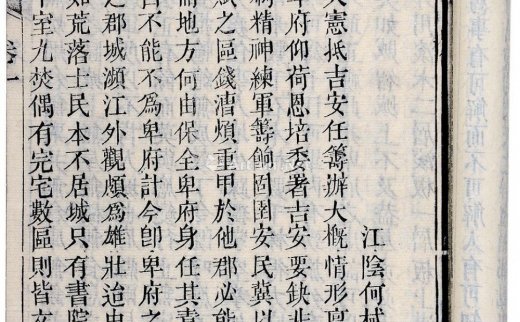 江陰何栻
大憲抵吉安任籌辦大概情形稟
卑府仰荷恩培委署吉安要缺非
刷精神練軍籌餉固圉安民冀以
賦之區錢漕煩重甲於他郡必能
而地方何由保全卑府身任其責
皆不能不為卑府計今卽卑府之
之郡城瀕江外觀頗爲雄壯迨由
如荒落士民本不居城只有書院
室九焚偶有完宅數區則皆
卷一